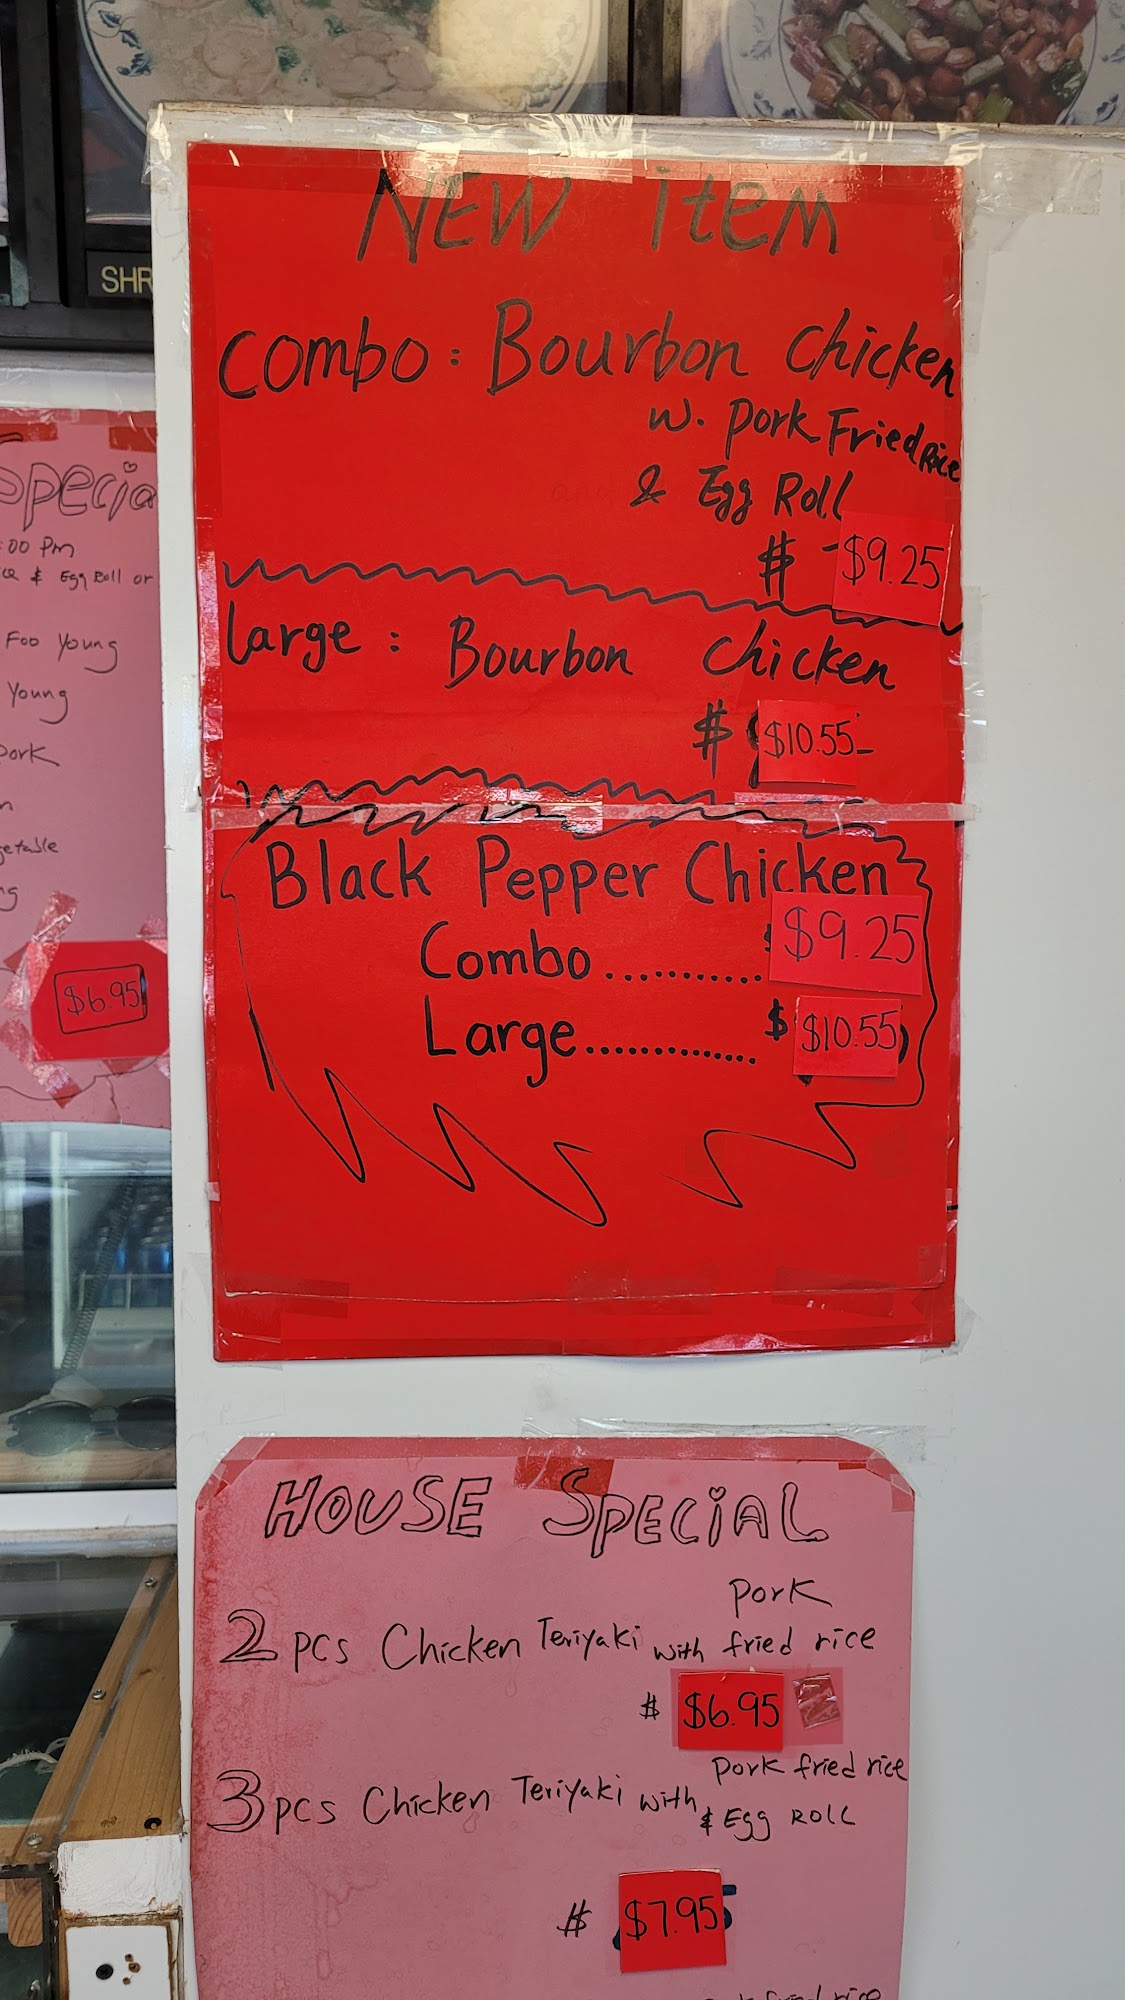 SHR
NEW iteM
Combo : Bourbon Chicken
w. Pork Fried Rice
& Egg Roll
$ $9.25
Large : Bourbon Chicken
$ $10.55
Black Pepper Chicken
Combo.......... $ $9.25
Large............. $ $10.55
Specia
:00 Pm
& Egg Roll or
Foo Young
Young
Pork
$6.95
HOUSE SPECiAL
2 pcs Chicken Teriyaki with Pork fried rice
$ $6.95
3 pcs Chicken Teriyaki with Pork fried rice
& Egg Roll
$ $7.95